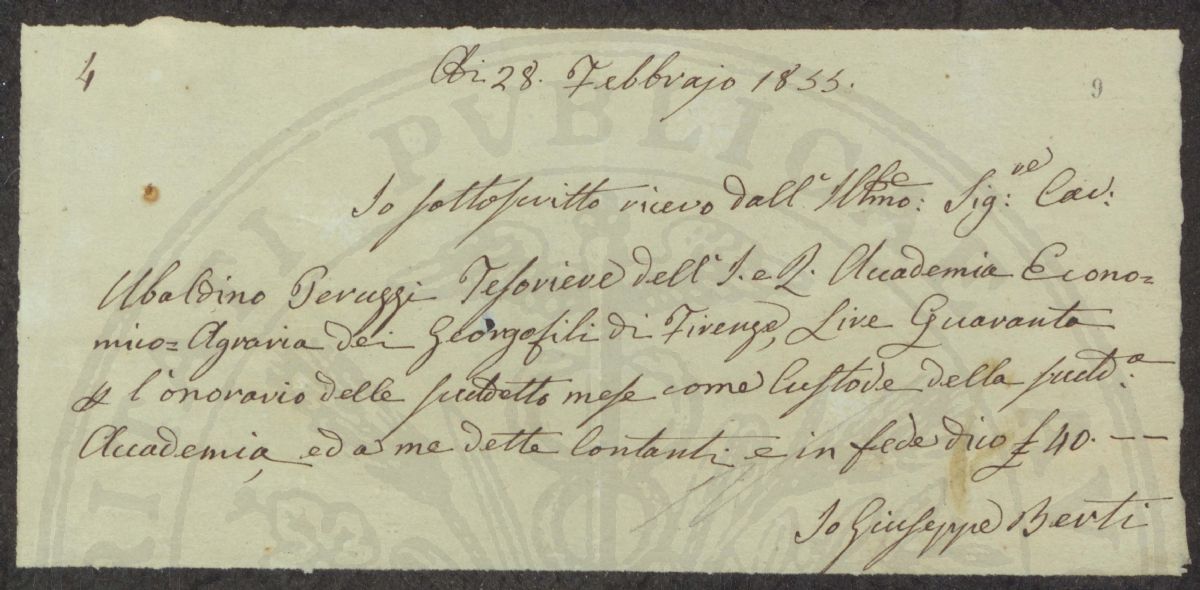 4
Adi 28. Febbrajo 1855.
9
Io sottoscritto ricevo dall' Illmo: Sig:re Cav:
Ubaldino Peruzzi Tesoriere dell' I. e R. Accademia Econo=
mico=Agraria dei Georgofili di Firenze, Lire Quaranta
p l'onorario delle suddetto mese come Custode della sudd:a
Accademia, ed a me dette Contanti e in fede dico £ 40. — —
Io Giuseppe Berti
PVBLICAE